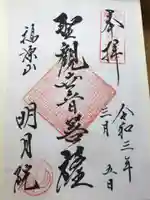 奉拝
令和三年
三月五日
聖観世音菩薩
福源山
明月院